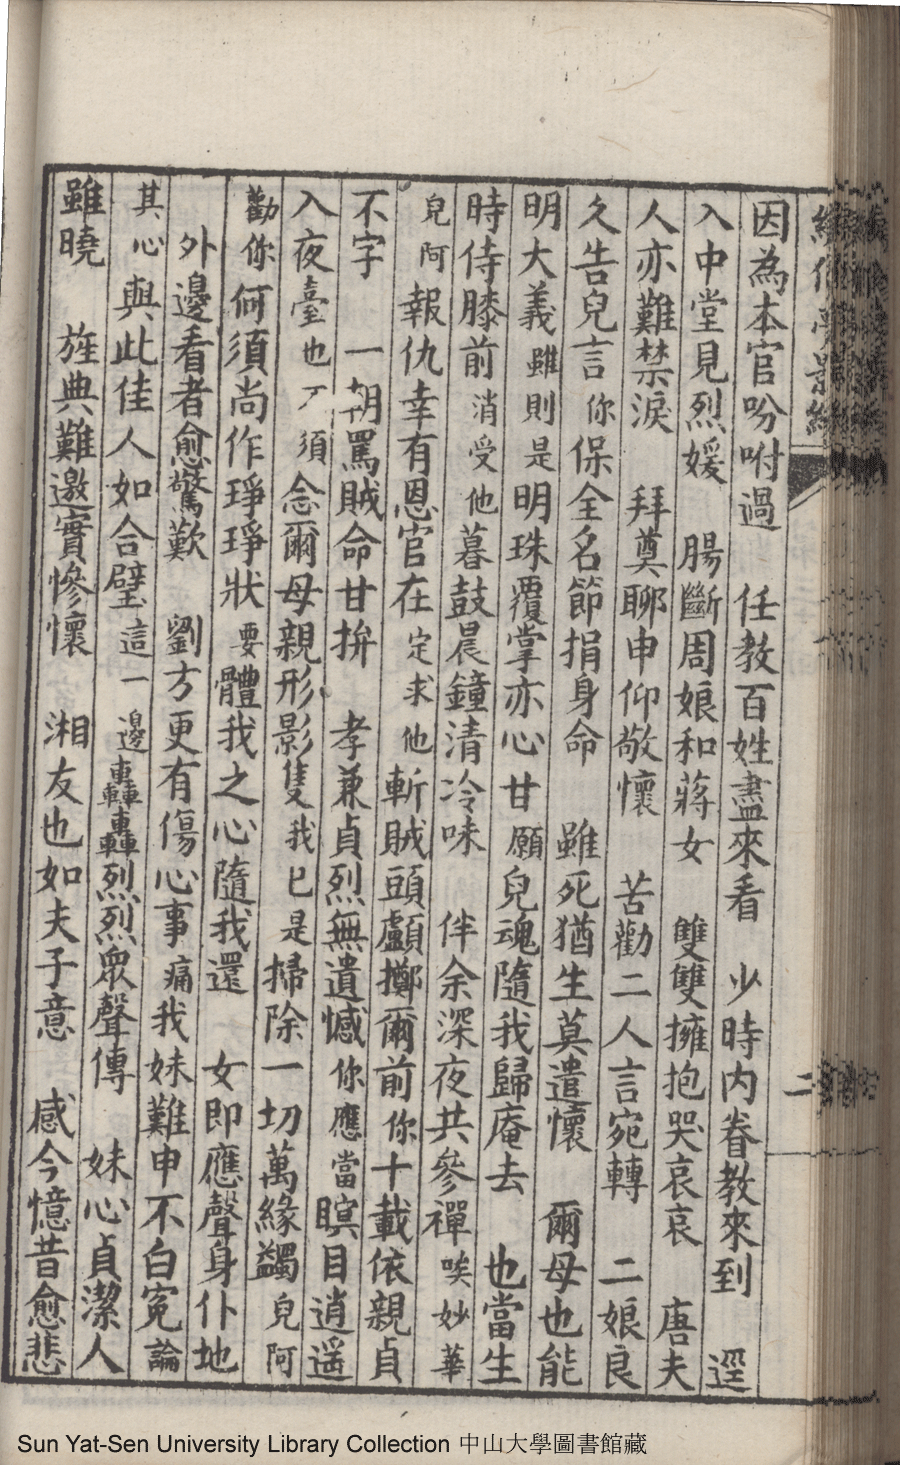 因為本官吩咐過　任教百姓盡來看　少時內眷教來到　逕
入中堂見烈媛　腸斷周娘和蔣女　雙雙擁抱哭哀哀　唐夫
人亦難禁淚　拜奠聊申仰敬懷　苦勸二人言宛轉　二娘良
久告兒言你保全名節捐身命　雖死猶生莫遣懷　爾母也能
明大義雖則是明珠覆掌亦心甘願兒魂隨我歸庵去　也當生
時侍膝前消受他暮鼓晨鐘清冷味　伴余深夜共參禪唉妙華
兒阿報仇幸有恩官在定求他斬賊頭顱擲爾前你十載依親貞
不字　一朝罵賊命甘拚　孝兼貞烈無遺憾你應當瞑目逍遥
入夜臺也不須念爾母親形影隻我已是掃除一切萬緣蠲兒阿
勸你何須尚作琤琤狀要體我之心隨我還　女即應聲身仆地
外邊看者愈驚歎　劉方更有傷心事痛我妹難申不白寃論
其心與此佳人如合璧這一邊轟轟烈烈眾聲傳　妹心貞潔人
雖曉　旌典難邀實慘懷　湘友也如夫子意　感今憶昔愈悲
二
Sun Yat-Sen University Library Collection 中山大學圖書館藏